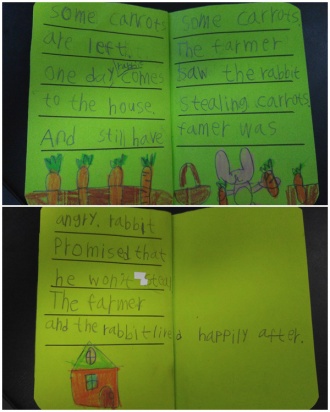 some carrots
are left.
one day, rabbit comes
to the house.
And still have
Some carrots.
The farmer
Saw the rabbit
Stealing carrots.
famer was
angry. rabbit
Promised that
he won't steal
The farmer
and the rabbit lived happily after.